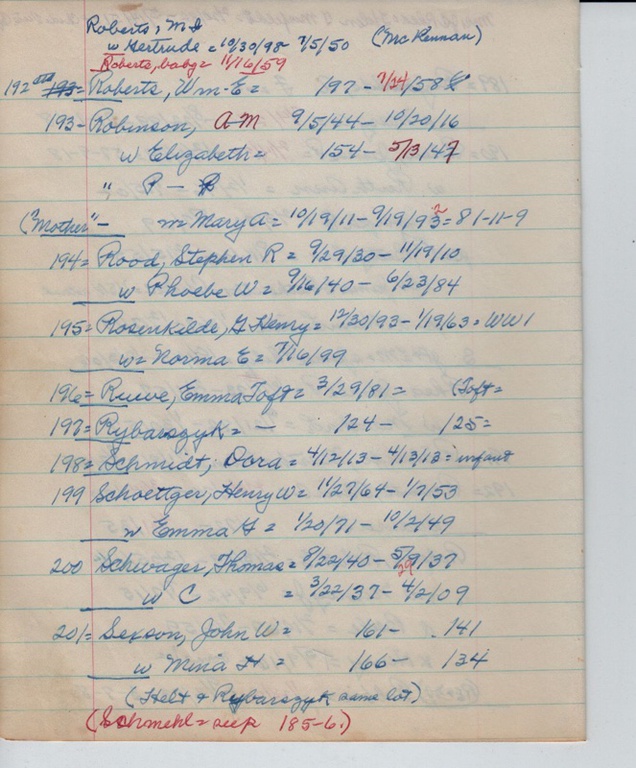 Roberts, M I
w Gertrude = 10/30/98 - 7/5/50 (McKennan)
Roberts, baby = 11/16/59
192 193= Roberts, Wm-E = 197 - 7/24/58
193= Robinson, A-M 9/5/44 - 10/20/16
w Elizabeth = 154 - 5/13/47
" P - P
("Mother" - m= Mary A = 10/19/11 - 9/19/93 2 = 81-11-9
194= Rood, Stephen R = 9/29/30 - 11/19/10
w Phoebe W = 9/16/40 - 6/23/84
195= Rosenkilde, G Henry = 12/30/93 - 1/19/63 = WW1
w= Norma E = 7/16/99
196= Ruwe, Emma Toft = 3/29/81 = (Toft =
197= Rybarszyk = - 124 - 125 =
198= Schmidt, Dora = 4/12/13 - 4/13/13 = infant
199 Schoettger, Henry W = 11/27/64 - 1/7/53
w Emma G = 1/20/71 - 10/2/49
200 Schwager, Thomas = 8/22/40 - 5/9/37
29
w C = 3/22/37 - 4/2/09
201= Sexson, John W = 161 - .141
w Mina H = 166 - 134
(Helt & Rybarszyk same lot)
(Schmehl = see p 185-6.)